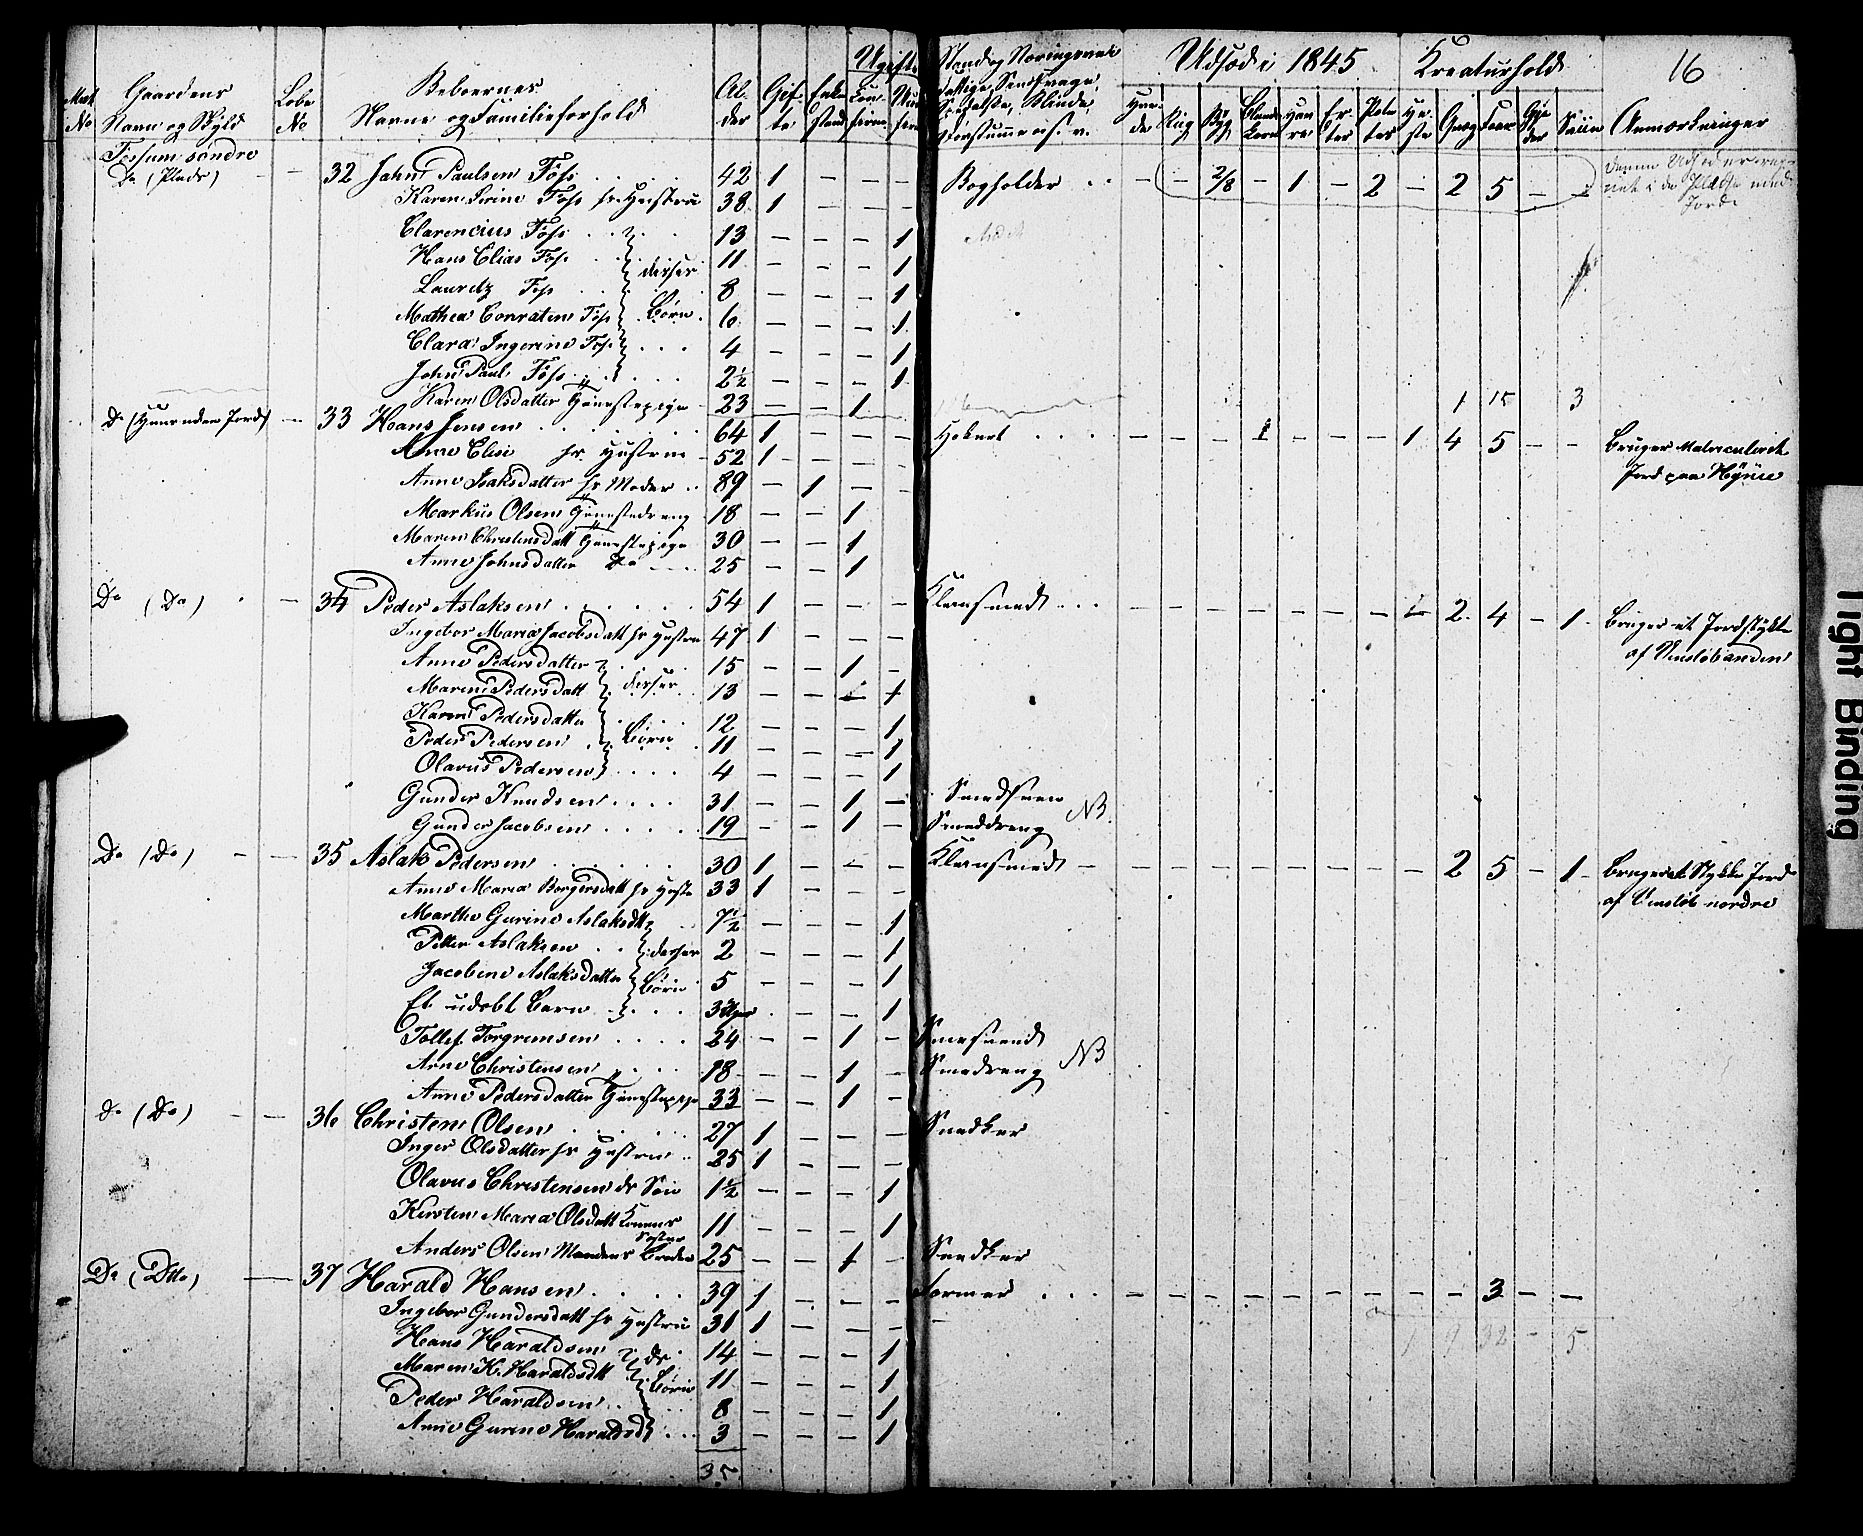 16
Matr No | Gaardens Navn og Skyld | Løbe No | Beboernes Navne og Familieforhold | Alder | Gifte | Enkestand | Ugifte
Udsæd i 1845 | Kreaturhold
Hvede | Rug | Byg | Blandkorn | Havre | Erter | Poteter | Heste | Qvæg | Faar | Gjeder | Sviin | Anmærkninger
Fossum søndre
Do (Plads) — — 32 John Paulsen Foss 42 1 — — — Bogholder — — 2/8 — 1 — 2 — 2 5 — —
Karen Sirine Foss hs Hustru 38 1 — — —
Clarencius Foss 13 — — — 1
Hans Elias Foss 11 — — — 1
Lauritz Foss 8 — — — 1
Mathea Conratine Foss 6 — — — 1
Clara Ingerine Foss 4 — — — 1
John Paul Foss 2½ — — — 1
deres Børn
Karen Olsdatter Tjenestepige 23 — — 1
1 15 3
Do (Huus uden Jord) — 33 Hans Jensen 64 1 — — — — — — 1 — — — 1 4 5 — — Bruger Matriculeret
Jord paa
Anne Elise hs Hustrue 52 1 — — —
Anne Isaksdatter hs Moder 89 — 1 — —
Markus Olsen Tjenestedreng 18 — — 1
Maren Christensdatt Tjenestepige 30 — — 1
Anne Johnsdatter Do 25 — — 1
Do (Do) — 34 Peder Aslaksen 54 1 — — — Kleinsmed — — — — — — — 2 4 — 1 Bruger et Jordstykke
af
Ingebor Maria Jacobsdatt hs Hustru 47 1 — — —
Anne Pedersdatter 15 — — 1 —
Maren Pedersdatt 13 — — 1
Karen Pedersdatter 12 — — — 1
Peder Pedersen 11 — — — 1
Olavus Pedersen 4 — — — 1
deres Børn
Gunder Knudsen 31 — — 1 — Smedsvend NB
Gunder Jacobsen 19 — — 1 — Smeddreng
Do (Do) — — 35 Aslak Pedersen 30 1 — — — Kleinsmed — — — — — — — — 2 5 — 1 Bruger et Stykke Jord
af nordre
Anne Maria Borgersdatt hs Hustru 33 1 — — —
Marthe Gurine Aslaksdtt 7½ — — — 1
Petter Aslaksen 2 — — — 1
Jacobine Aslaksdatter 5 — — — 1
Et udøbt Barn 3 — — — 1
deres Børn
Tollef Torgrimsen 24 — — 1 — Smedsvend NB
Arne Christensen 18 — — 1 — Smedreng
Anne Pedersdatter Tjenestepige 33 — — 1 —
Do (Do) — — 36 Christen Olsen 27 1 — — — Snedker
Inger Olsdatter hs Hustrue 25 1 — — —
Olavus Christensen ds Søn 1½ — — — 1
Kirsten Maria Olsdatt Konens Søster 11 — — — 1
Anders Olsen Mandens Broder 25 — — 1 — Snedker
Do (Dtto) — 37 Harald Hansen 39 1 — — — Former — — — — — — — — — 3 — —
Ingebor Gundersdatt hs Hustru 31 1 — — —
1 9 32 — 5
Hans Haraldsen 14 — — — 1
Maren K. Haraldsdtt 11 — — — 1
Peder Haraldsen 8 — — — 1
Anne Gurine Haraldsd 3 — — — 1
ds Børn
35
Tight Binding